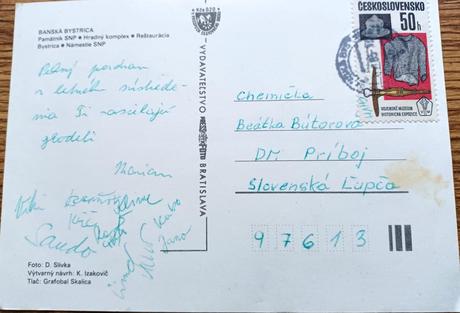 BANSKÁ BYSTRICA
Pamätník SNP • Hradný komplex • Reštaurácia
Bystrica • Námestie SNP
Pekný pozdrav
z letného
Ti zasielajú
zlodeji
Marian
Viki
Sando
Jano
Foto: D. Slivka
Výtvarný návrh: K. Izakovič
Tlač: Grafobal Skalica
VYDAVATEĽSTVO
BRATISLAVA
ČESKOSLOVENSKO
50h
VOJENSKÉ MUZEUM
HISTORICKÁ EXPOZICE
Chemička
Beátka Bútorová
DM Príboj
Slovenská Ľupča
97613